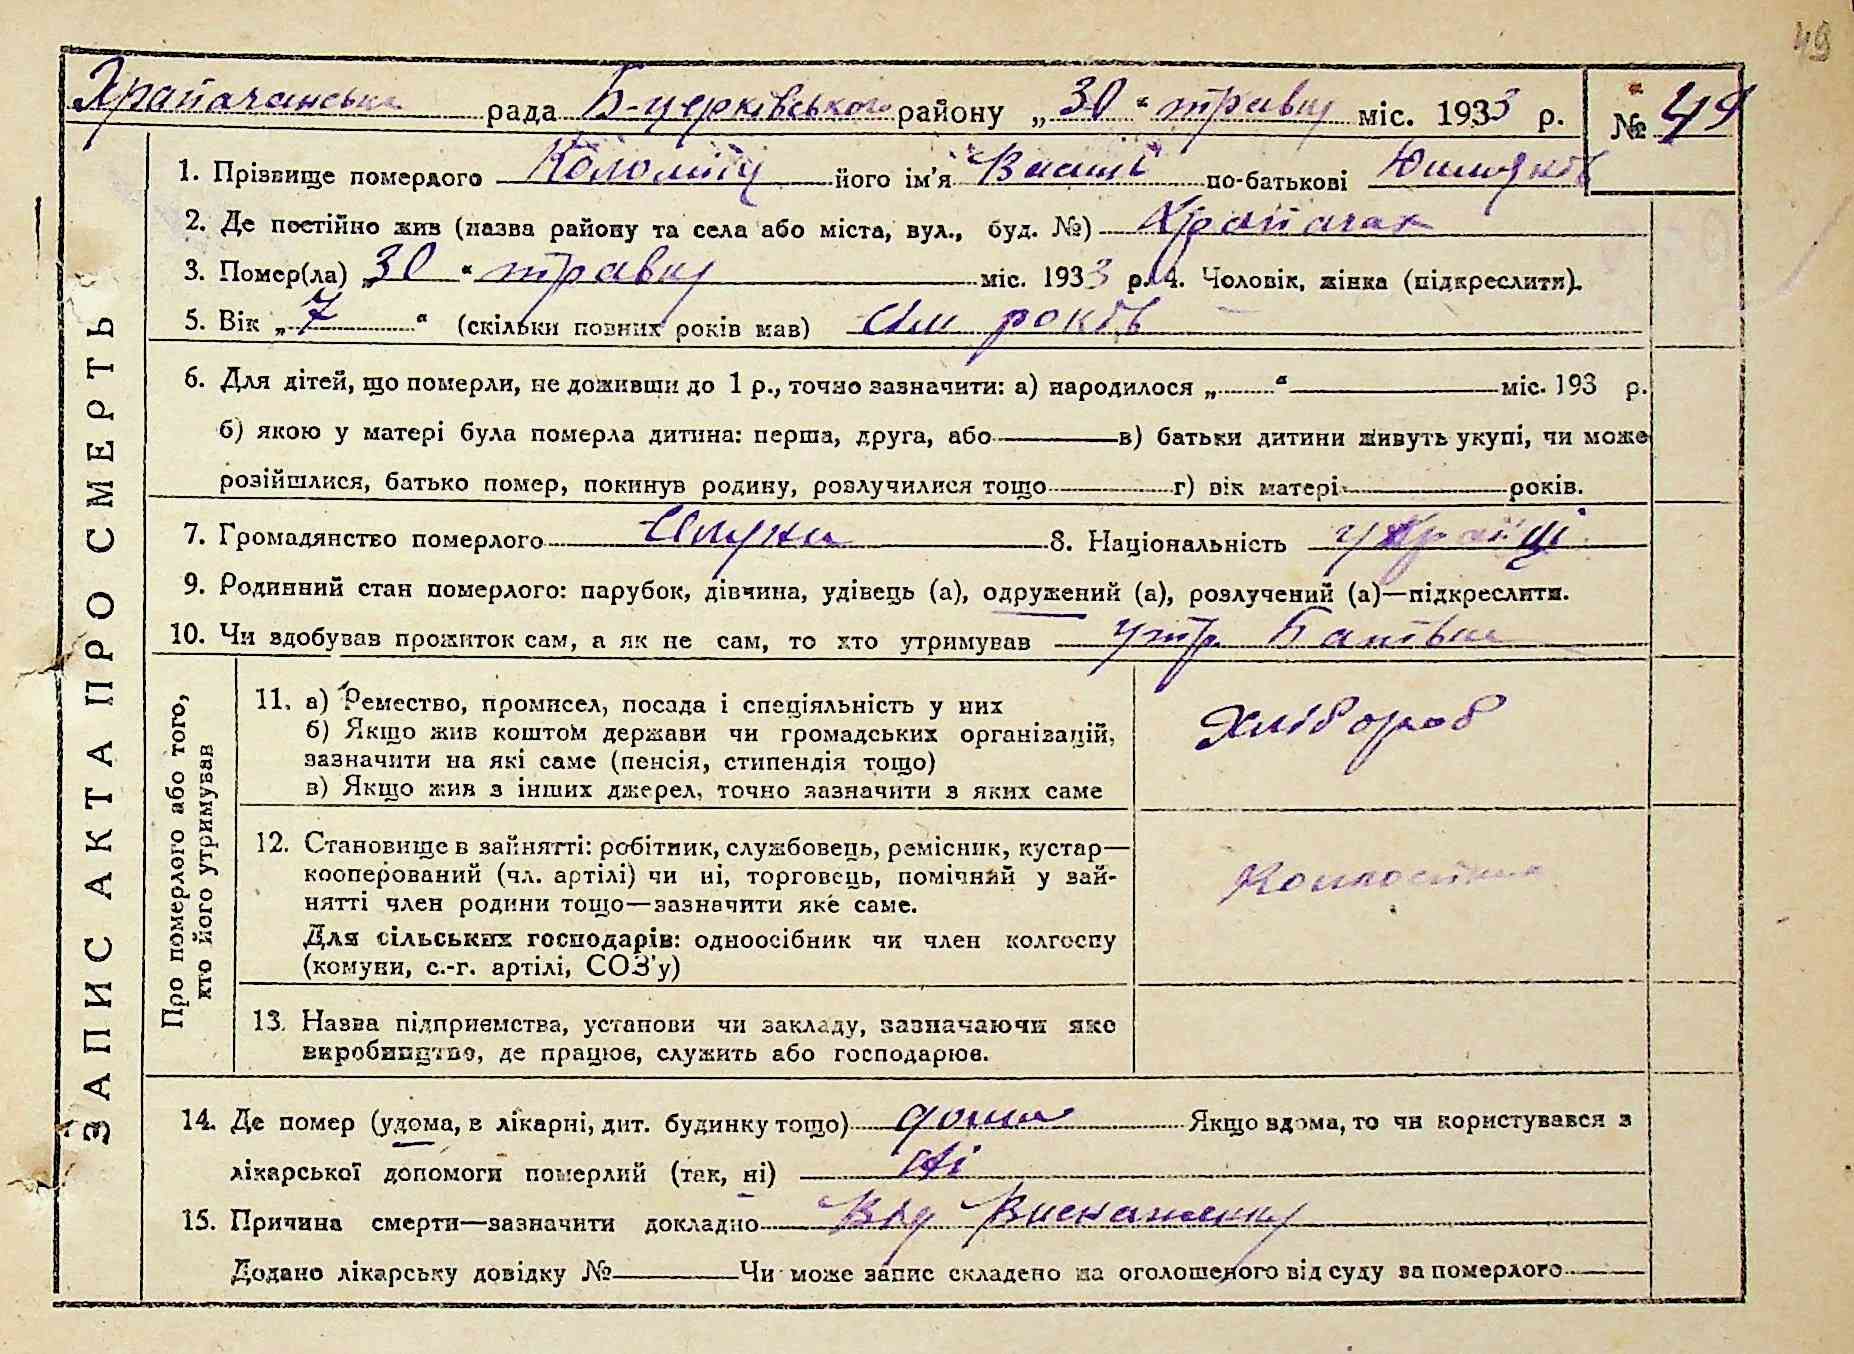 49
Храпачанська рада Б-церківського району „30“ травня міс. 1933 р. № 49
1. Прізвище померлого Коломієць його ім'я Василь по-батькові
2. Де постійно жив (назва району та села або міста, вул., буд. №) Храпачах
3. Помер(ла) „30“ травня міс. 1933 р. 4. Чоловік, жінка (підкреслити).
5. Вік „7“ (скільки повних років мав) сім років
6. Для дітей, що померли, не доживши до 1 р., точно зазначити: а) народилося „ “ міс. 193 р.
б) якою у матері була померла дитина: перша, друга, або в) батьки дитини живуть укупі, чи може
розійшлися, батько помер, покинув родину, розлучилися тощо г) вік матері років.
7. Громадянство померлого 8. Національність
9. Родинний стан померлого: парубок, дівчина, удівець (а), одружений (а), розлучений (а)—підкреслити.
10. Чи здобував прожиток сам, а як не сам, то хто утримував утр. Батьки
ЗАПИС АКТА ПРО СМЕРТЬ
Про померлого або того,
хто його утримував
11. а) Ремество, промисел, посада і спеціяльність у них
б) Якщо жив коштом держави чи громадських організацій,
зазначити на які саме (пенсія, стипендія тощо)
в) Якщо жив з інших джерел, точно зазначити з яких саме
Хлібороб
12. Становище в зайнятті: робітник, службовець, ремісник, кустар—
кооперований (чл. артілі) чи ні, торговець, помічний у зай-
нятті член родини тощо—зазначити яке саме.
Для сільських господарів: одноосібник чи член колгоспу
(комуни, с.-г. артілі, СОЗ'у)
13. Назва підприємства, установи чи закладу, зазначаючи яке
виробництво, де працює, служить або господарює.
14. Де помер (удома, в лікарні, дит. будинку тощо) дома Якщо вдома, то чи користувався з
лікарської допомоги померлий (так, ні) Ні
15. Причина смерти—зазначити докладно Від Виснаження
Додано лікарську довідку № Чи може запис складено на оголошеного від суду за померлого